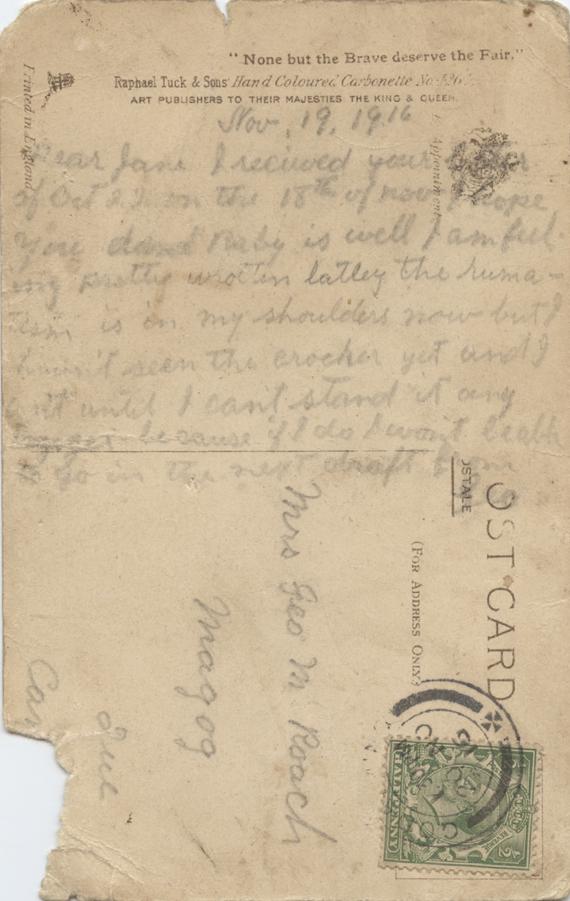 "None but the Brave deserve the Fair."
Raphael Tuck & Sons' Hand Coloured Carbonette No.
ART PUBLISHERS TO THEIR MAJESTIES THE KING & QUEEN.
Printed in England
Appointment
Nov. 19, 1916
Dear Jane I recieved your letter
of Oct 22 on the 18th of nov I hope
you and Baby is well I am feel
ing pretty wrotten latley the ruma-
tism is in my shoulders now but I
havn't seen the crocker yet and I
won't until I can't stand it any
because if I do I won't be able
to go in the next draft from
Geo
POST CARD
(FOR ADDRESS ONLY)
Mrs Geo M Roach
Magog
Que
Can
HALFPENNY